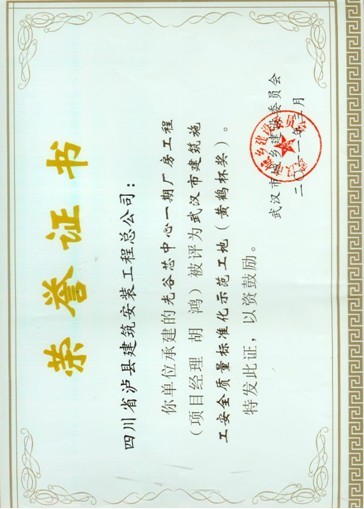 荣誉证书
四川省泸县建筑安装工程总公司：
你单位承建的光谷芯中心一期厂房工程
（项目经理 胡 鸿）被评为武汉市建筑施
工安全质量标准化示范工地（黄鹤杯奖）。
特发此证，以资鼓励。
武汉市城乡建设委员会
二〇一二年三月